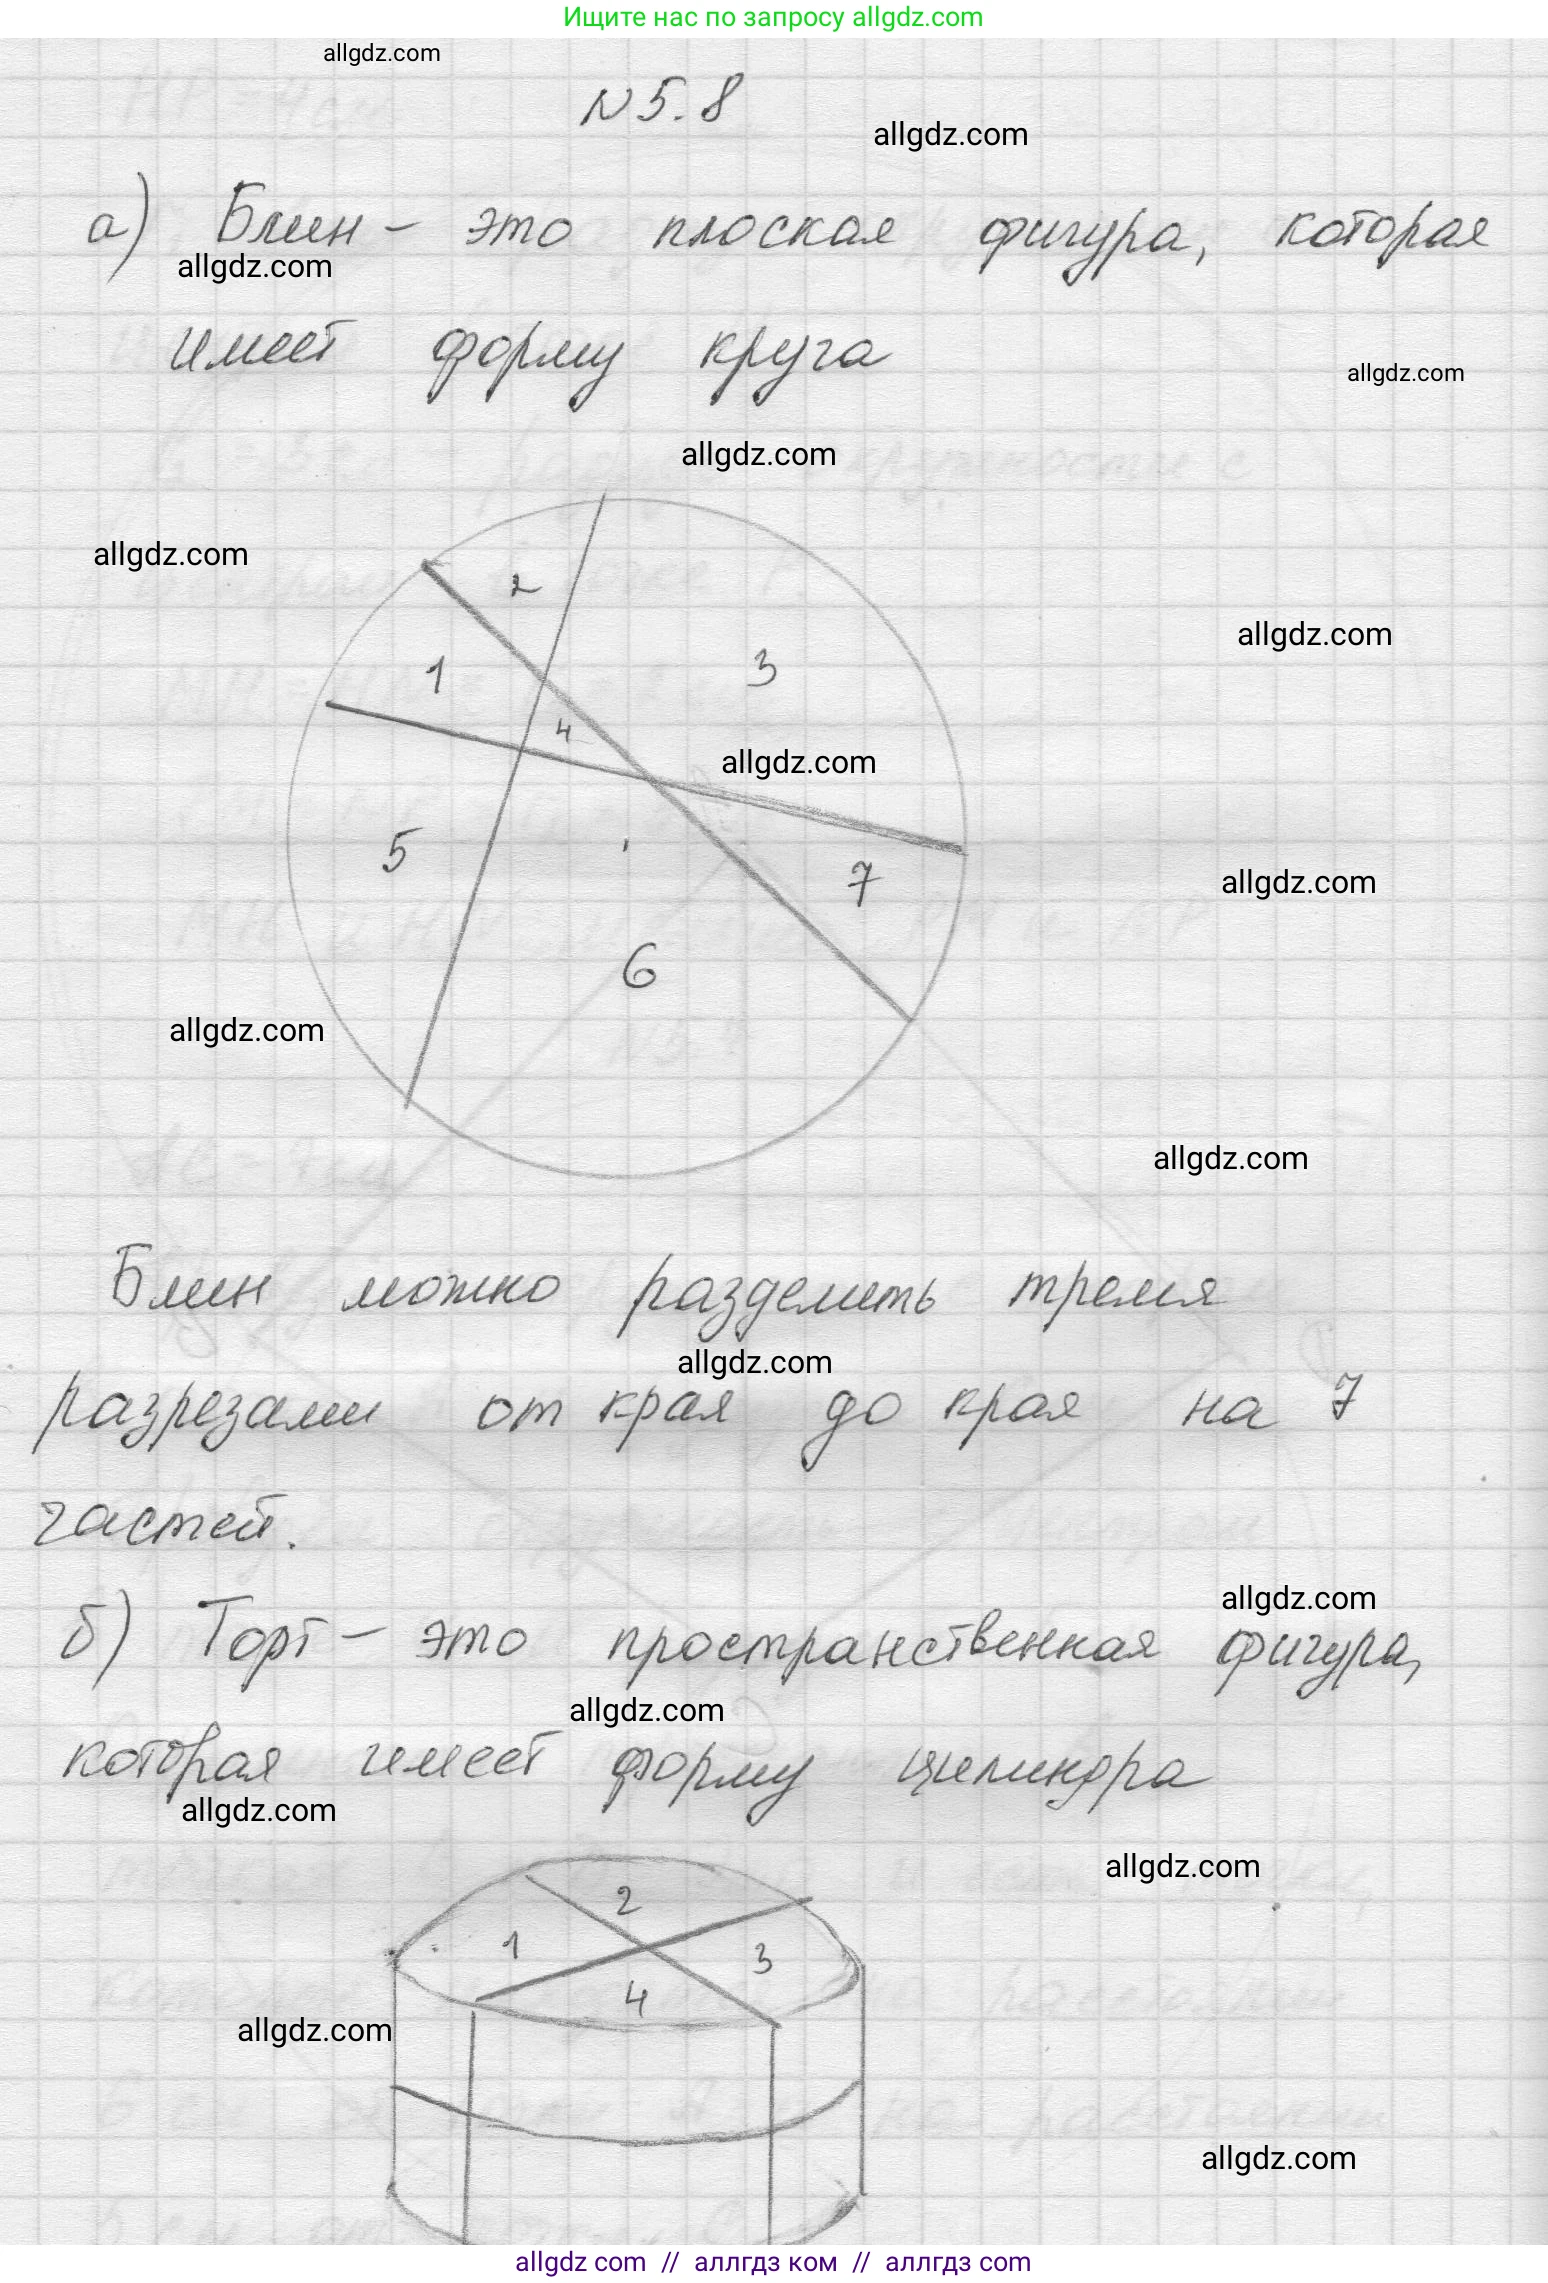 Ищите нас по запросу allgdz.com
allgdz.com
N 5.8
allgdz.com
а) Блин - это плоская фигура, которая
allgdz.com
имеет форму круга
allgdz.com
allgdz.com
allgdz.com
2
allgdz.com
1
3
4
allgdz.com
5
7
allgdz.com
6
allgdz.com
allgdz.com
Блин можно разделить тремя
allgdz.com
разрезами от края до края на 7
частей.
allgdz.com
б) Торт - это пространственная фигура,
allgdz.com
которая имеет форму цилиндра
allgdz.com
allgdz.com
2
1
3
4
allgdz.com
allgdz.com
allgdz com // аллгдз ком // аллгдз com